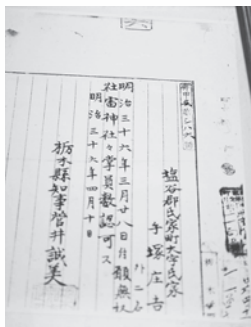 塩谷郡氏家町大字氏家
手塚庄吉
外二名
明治三十六年三月廿八日付願無格
社雷神社々掌員数認可ス
明治三十六年四月十日
栃木縣知事菅井誠美